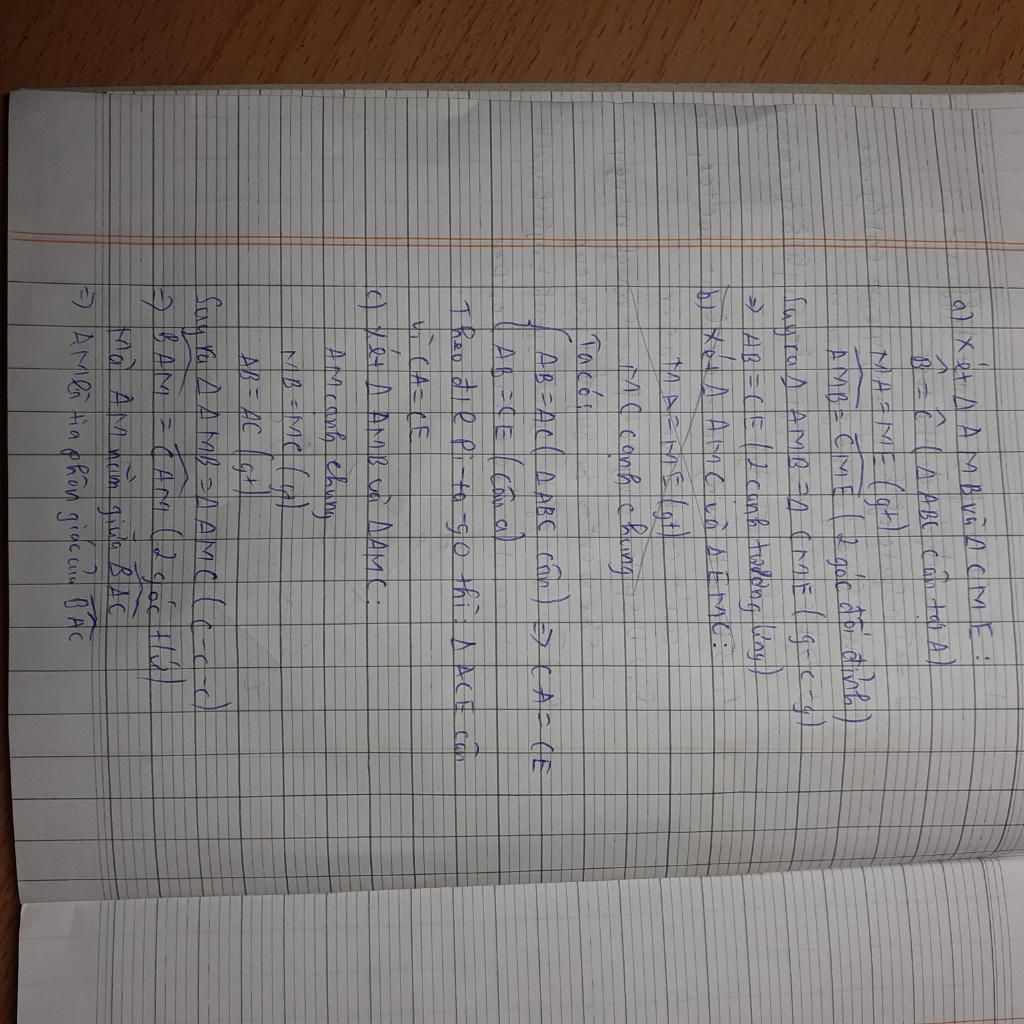 a) Xét Δ AMB và Δ CME:
B̂ = Ĉ (Δ ABC cân tại A)
MA = ME (gt)
AMB = CME (2 góc đối đỉnh)
Suy ra Δ AMB = Δ CME (g-c-g)
=> AB = CE (2 cạnh tương ứng)
b) Xét Δ AMC và Δ EMC:
MA = ME (gt)
MC cạnh chung
Ta có:
{ AB = AC (Δ ABC cân) => CA = CE
AB = CE (câu a)
Theo đ/l Pi-ta-go thì: Δ ACE cân
vì CA = CE
c) Xét Δ AMB và ΔAMC:
AM cạnh chung
MB = MC (gt)
AB = AC (gt)
Suy ra Δ AMB = Δ AMC (c-c-c)
=> BAM = CAM (2 góc t/ứ)
Mà AM nằm giữa BAC
=> AM là tia phân giác của BAC